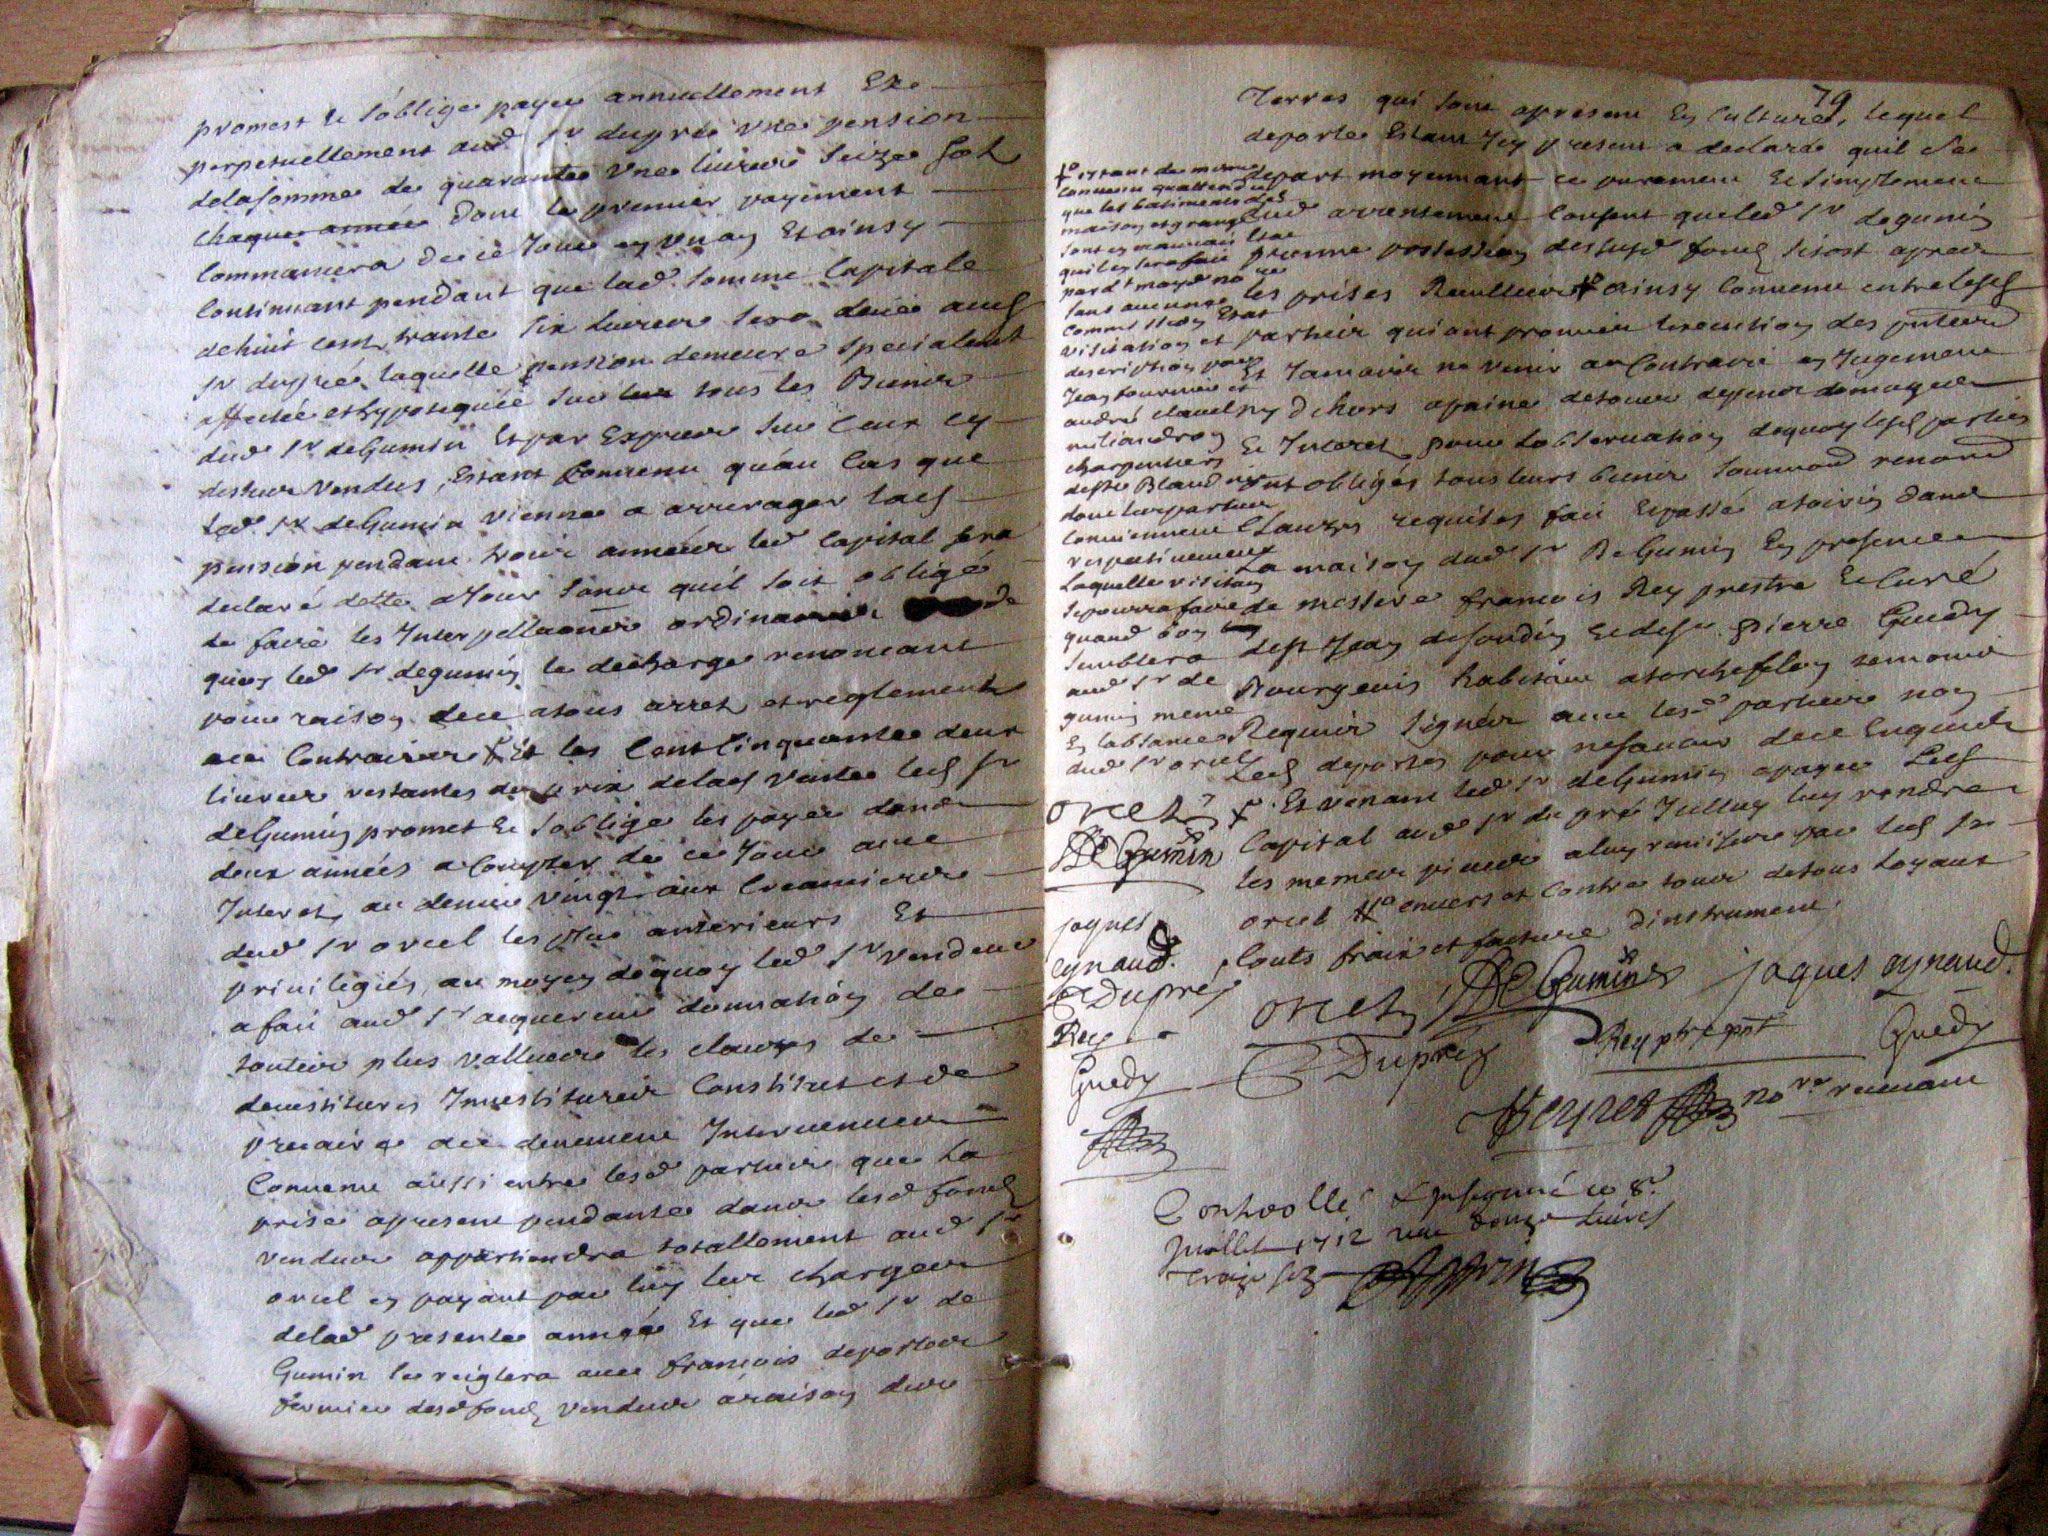 promest et s'oblige payer annuellement Et
perpetuellement aud sr dupré une pension
de la somme de quarante une livres seize sols
chaque année dont le premier payement
commancera de ce jour en un an Et ainsy
continuant pendant que lad somme capitale
de huit cent trante six livres sera deue aud
sr dupré, laquelle pension demeure specialemt
affectée et hypotequée sur tous les Biens
dud sr deGumin Et par Exprès sur ceux cy
dessus vendus, Estant convenu qu'au cas que
led sr deGumin vienne a arrerager lad
pension pendant trois années led capital sera
declaré dette a jour sans quil soit obligé
de faire les Interpellations ordinaires de
quoy led sr degumin le decharge renoncant
pour raison de ce a tous arrets et reglements
a ce contraires + Et les cent cinquante deux
livres restantes du prix de lad vente led sr
deGumin promet Et s'oblige les payer dans
deux années a compter de ce jour avec
Interets au denier vingt aux creanciers
dud sr orcel les plus anterieurs Et
privilegiés, au moyen de quoy led sr vendeur
a fait aud sr acquereur donnation de
toutes plus vallues les clauses de
devestitures Investitures constitut et de
precaire a ce deuement Intervenues
Convenu aussi entre lesd parties que la
prise apresent pendante dans lesd fonds
vendus appartiendra totallement aud sr
orcel en payant par luy les charges
de lad presente année Et que led sr de
Gumin se reiglera avec françois deportes
fermier desd fonds vendus a raison des
79
Terres qui sont apresent En culture, lequel
deportes Estant Icy present a declaré quil se
depart moyennant ce purement Et simplement
dud arrentement consent que led sr degumin
prenne possession des susd fonds sitost apres
les prises Recullies + ainsy convenu entre lesd
parties qui ont promis l'execution des pntes
Et Jamais ne venir au contraire en Jugement
ny dehors a peine de tous depens domages
Et Interets, pour l'observation de quoy lesd parties
ont obligés tous leurs biens soumis renoncé
Clauzes requises fait Et passé a toirin dans
La maison dud sr DeGumin En presence
de messire francois Rey prestre Et curé
de st Jean de soudin Et de sr pierre Guedy
Bourgeois habitant a torchefelon temoins
Requis signés avec lesd parties non
Led deportes pour ne savoir de ce Enquis
+ Et venant led sr deGumin a payer Led
capital aud sr du pré Icelluy luy rendra
les memes pieces a luy remises par led sr
orcel envers et contre tous de tous loyaux
couts fraix et facture d'instrument.
+ estant de meme
convenu quattendu
que les batiments des
maison et grange
sont en mauvais Etat
quil en sera fait
par dt moyd nore
sans aucune
commission Etat
visitation et
description par
Jean fournier et
andré clavel
charpentiers
dont les parties
conviennent
respectivement
Laquelle visitation
se pourra faire
quand bon
semblera
aud sr de
gumin meme
En l'absance
dud sr orcel
orcel
DeGumin
jaques
eynaud.
Dupré
Rey
Guedy
orcel
DeGumin
jaques eynaud.
Dupré
Rey ptre pnt
Guedy
Peyret nore recevant
Controollé & Insinué ce 8e
Juillet 1712 reçu douze livres
treize sols